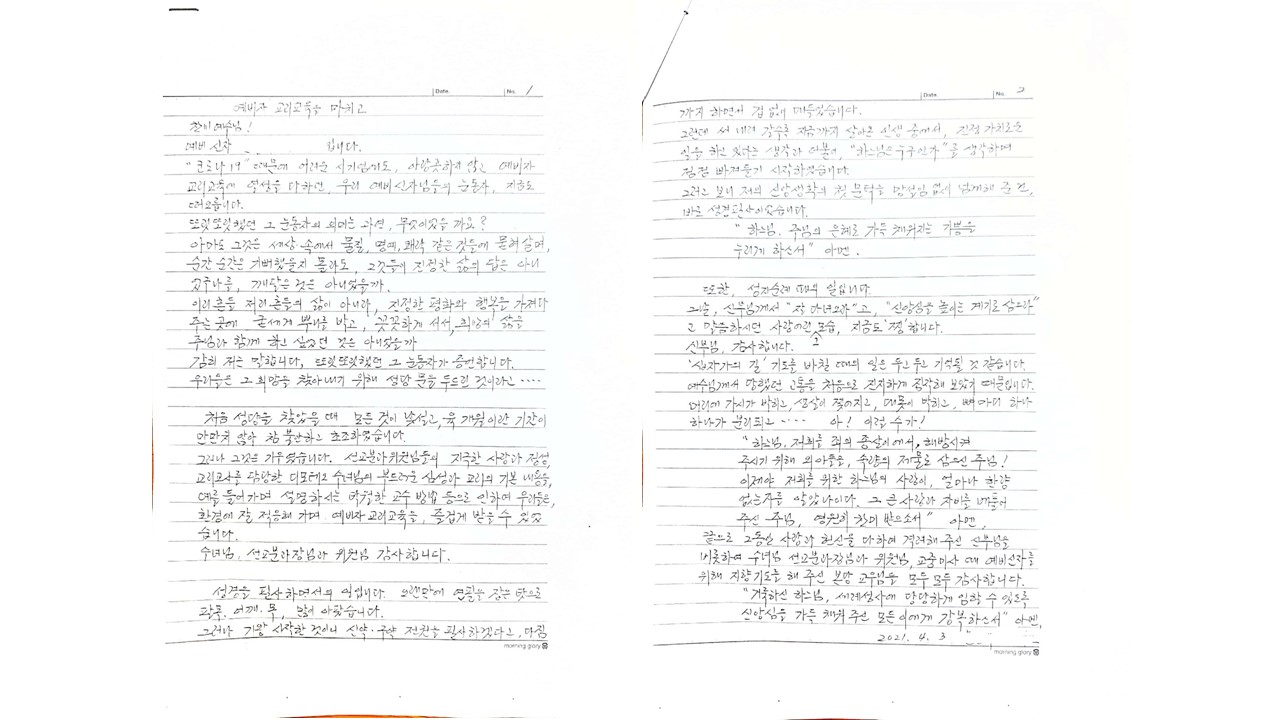 Date. No. 1
예비자 교리교육을 마치고
찬미예수님!
예비 신자 입니다.
"코로나 19" 때문에 어려운 시기임에도, 아랑곳하지 않고 예비자
교리교육에 열성을 다하던, 우리 예비신자님들의 눈동자, 지금도
떠오릅니다.
또랏또랏했던 그 눈동자의 의미는 과연, 무엇이었을 까요?
아마도 그것은 세상 속에서 물질, 명예, 쾌락 같은 것들에 물려 살며,
순간 순간은 기뻐했을지 몰라도, 그것들이 진정한 삶의 답은 아니
었구나를, 깨달은 것은 아니었을까.
이리 흔들 저리 흔들의 삶이 아니라, 진정한 평화와 행복을 가져다
주는 곳에 굳세게 뿌리를 박고, 꼿꼿하게 서서, 희망의 삶을
주님과 함께 하고 싶었던 것은 아니었을까
감히 저는 말합니다. 또랏또랏했던 그 눈동자가 증언합니다.
우리들은 그 희망을 찾아내기 위해 성당 문을 두드린 것이라고 ‥‥
처음 성당을 찾았을 때 모든 것이 낯설고, 육 개월이란 기간이
만만치 않아 참 불안하고 초조하였습니다.
그러나 그것은 기우였습니다. 선교분과위원님들의 지극한 사랑과 정성,
교리교사를 담당한 디모테오 수녀님의 부드러운 심성과 교리의 기본 내용을,
예를 들어가며 설명하시는 다정한 교수 방법 등으로 인하여 우리들은,
환경에 잘 적응해 가며 예비자 교리교육을, 즐겁게 받을 수 있었
습니다.
수녀님, 선교분과장님과 위원님 감사합니다.
성경을 필사하면서의 일입니다. 오랜만에 연필을 잡은 탓으로
팔목, 어깨, 목, 많이 아팠습니다.
그러나 기왕 시작한 것이니 신약·구약 전권을 필사하겠다고, 다짐
morning glory
Date. No. 2
까지 하면서 겁 없이 대들었습니다.
그런데 써 내려 갈수록 지금까지 살아온 인생 중에서, 진정 가치로운
일을 하고 있다는 생각과 아울러, "하느님은 누구인가"를 생각하며
점점 빠져들기 시작하였습니다.
그러고 보니 저의 신앙생활의 첫 문턱을 망설임 없이 넘게해 준 건,
바로 성경필사이었습니다.
"하느님. 주님의 은혜로 가득 채워지는 기쁨을
누리게 하소서" 아멘.
또한, 성지순례 때의 일입니다.
그날, 신부님께서 "잘 다녀오라"고, "신앙심을 높이는 계기로 삼으라"
고 말씀하시던 사랑어린 그 모습, 지금도 '찡'합니다.
신부님, 감사합니다.
'십자가의 길' 기도를 바칠 때의 일은 두고 두고 기억될 것 같습니다.
예수님께서 당했던 고통을 처음으로 진지하게 짐작해 보았기 때문입니다.
머리에 가시가 박히고, 생살이 찢어지고, 대못이 박히고, 뼈 마디 하나
하나가 분리되고 ‥‥ 아! 이럴 수가!
"하느님. 저희를 죄의 종살이에서, 해방시켜
주시기 위해 외아들을, 수량의 제물로 삼으신 주님!
이제야 저희를 위한 하느님의 사랑이, 얼마나 한량
없는지를 알았나이다. 그 큰 사랑과 자비를 베풀어
주신 주님, 영원히 찬미 받으소서" 아멘.
끝으로 그동안 사랑과 헌신을 다하여 격려해 주신 신부님을
비롯하여 수녀님 선교분과장님과 위원님, 교중미사 때 예비신자를
위해 지향기도를 해 주신 본당 교우님들 모두 모두 감사합니다.
"거룩하신 하느님, 세례성사에 당당하게 임할 수 있도록
신앙심을 가득 채워 주신 모든 이에게 강복하소서" 아멘.
2021. 4. 3
morning glory